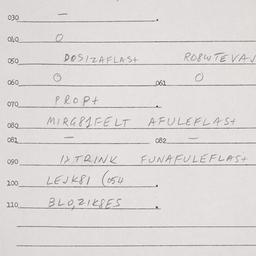 030 — .
040 O
050 DOSIZAFLAS+ ROBWTEVAJ
060 O 061 O
070 PROP+ .
080 MIRG81FELT AFULEFLAS+
081 — 082 —
090 1>TRINK FUNAFULEFLAS+
100 LEJK81 (054 .
110 BLO,ZIK8ES .